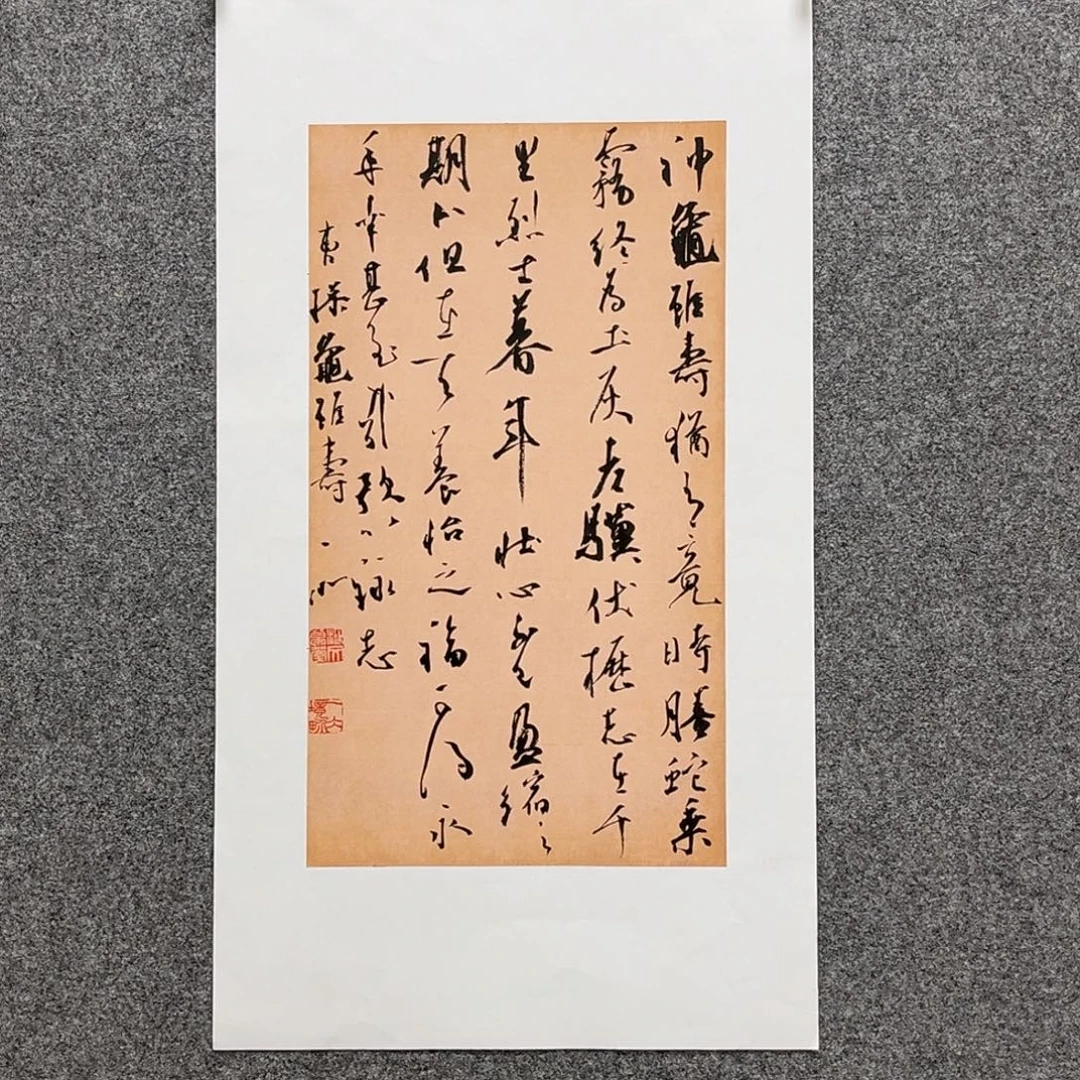 神龜雖壽猶有竟時騰蛇乘
霧終為土灰老驥伏櫪志在千
里烈士暮年壯心不已盈縮之
期不但在天養怡之福可得永
年幸甚至哉歌以詠志
曹操龜雖壽